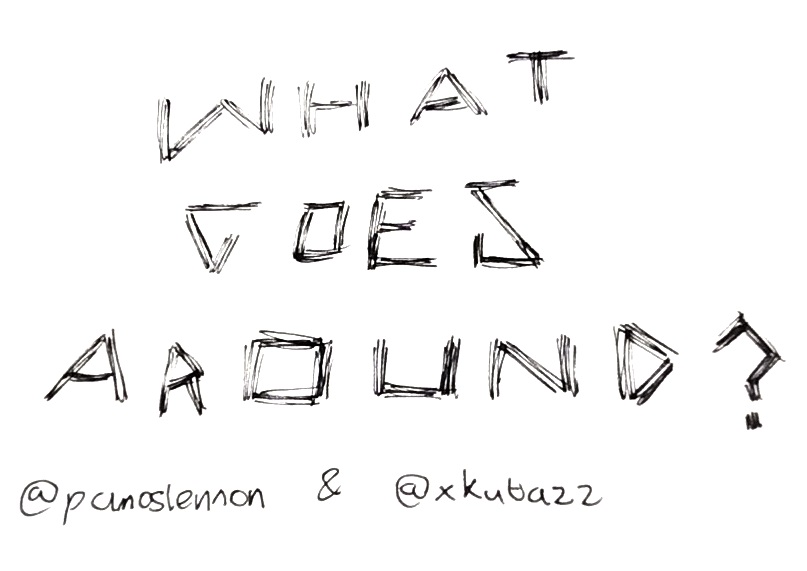 WHAT
GOES
AROUND?
@panoslennon & @xkubazz